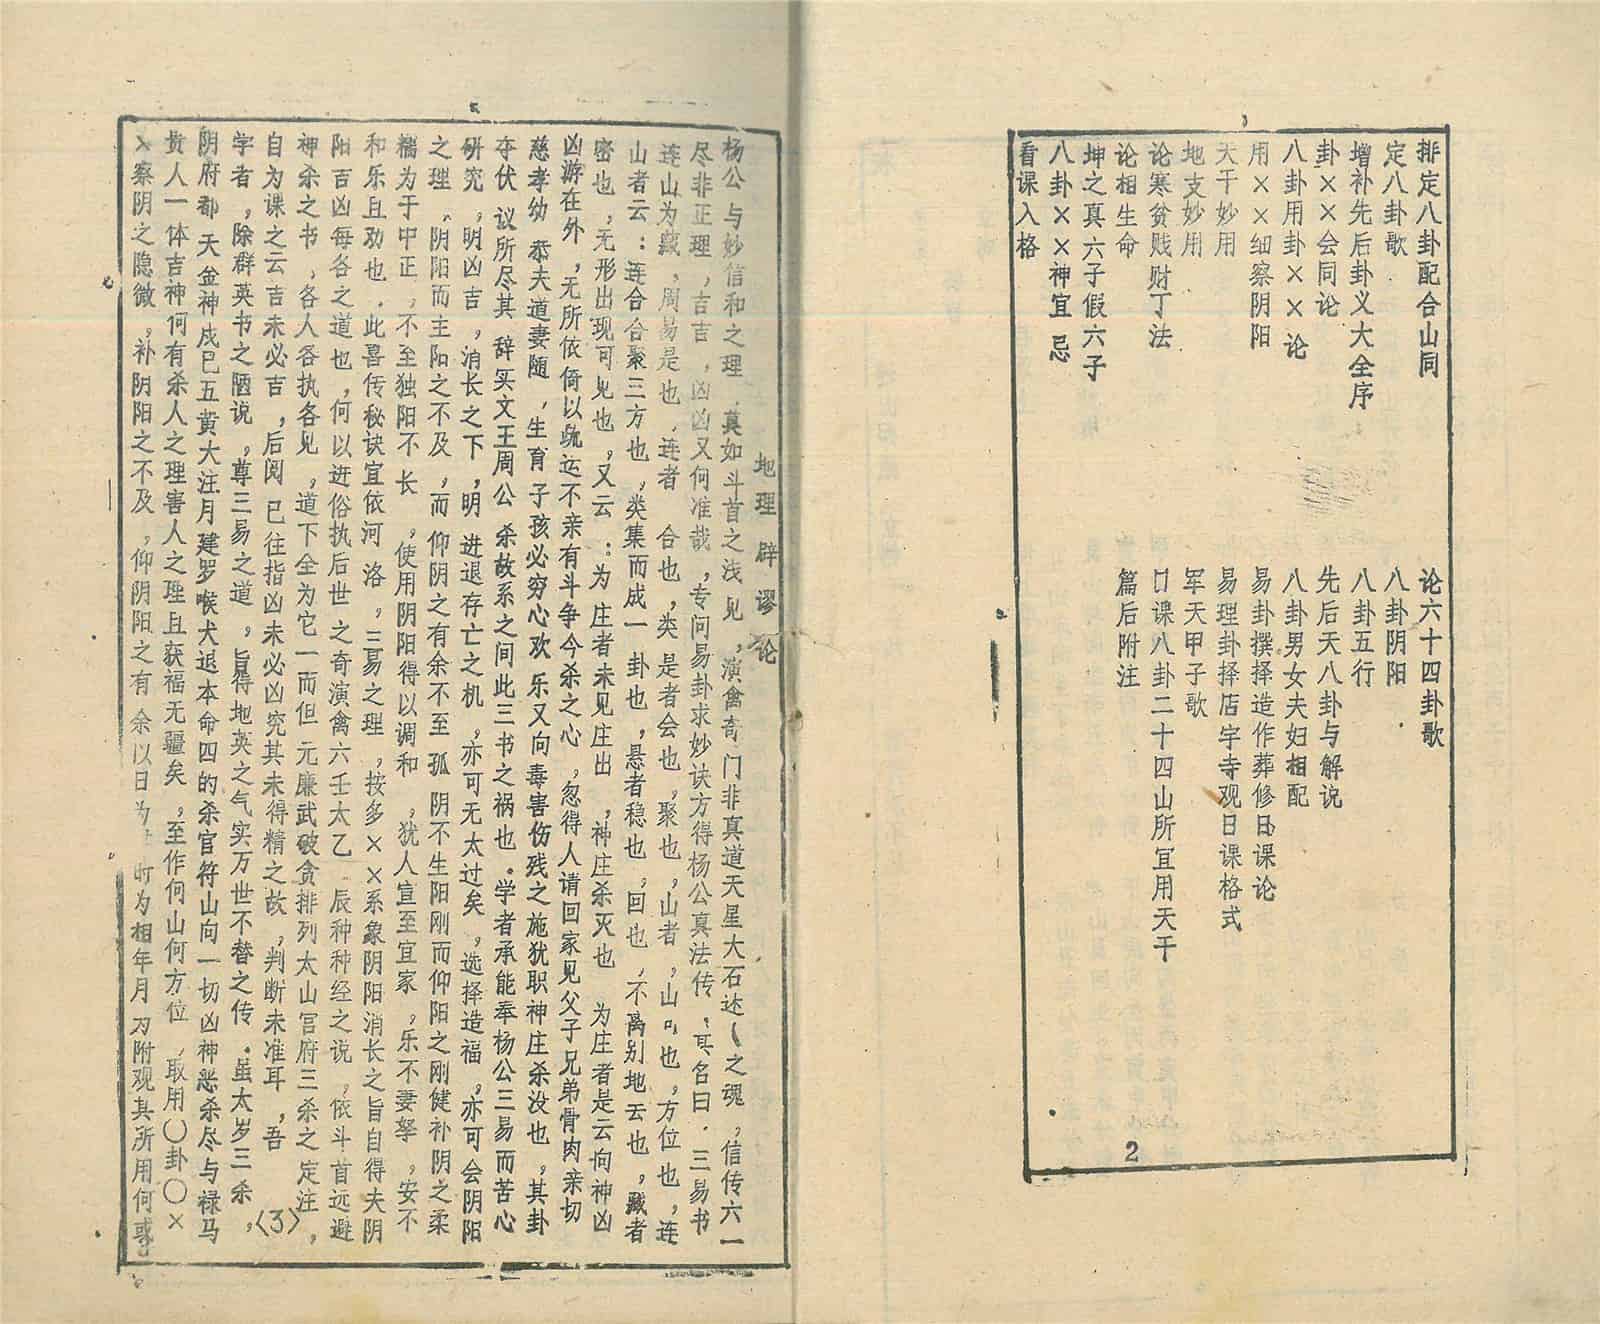 排定八卦配合山同
定八卦歌
增补先后卦义大全序
卦××会同论
八卦用卦××论
用××细察阴阳
天干妙用
地支妙用
论寒贫贱财丁法
论相生命
坤之真六子假六子
八卦××神宜忌
看课入格
论六十四卦歌
八卦阴阳
八卦五行
先后天八卦与解说
八卦男女夫妇相配
易卦撰择造作葬修日课论
易理卦择店宇寺观日课格式
军天甲子歌
口课八卦二十四山所宜用天干
篇后附注
2
地理辟谬论
杨公与妙信和之理.真如斗首之浅见,演禽奇门非真道天星大石达之魂,信传六一
尽非正理,吉吉,凶凶又何准哉,专问易卦求妙诀方得杨公真法传,其名曰.三易书
连山为藏,周易是也,连者,合也,类是者会也,聚也,山者,山也,方位也,连
山者云:连合合聚三方也,类集而成一卦也,悬者稳也,回也,不离别地云也,藏者
密也,无形出现可见也,又云:为庄者未见庄出,神庄杀灭也,为庄者是云向神凶
凶游在外,无所依倚以航运不亲有斗争今杀之心,忽得人请回家见父子兄弟骨肉亲切
慈孝幼,恭夫道妻随,生育子孩必穷心欢乐又向毒害伤残之施犹职神庄杀没也,其卦
夺伏议所尽其辞实文王周公杀故系之间此三书之祸也.学者承能奉杨公三易而苦心
研究,明凶吉,消长之下,明进退存亡之机,亦可无太过矣,选择造福,亦可会阴阳
之理,阴阳而主阳之不及,而仰阴之有余不至孤阴不生阳刚而仰阳之刚健补阴之柔
糯为于中正,不至独阳不长,使用阴阳得以调和,犹人宣至宜家,乐不妻孥,安不
和乐且劝也.此喜传秘诀宜依河洛,三易之理,按多××系象阴阳消长之旨自得夫阴
阳吉凶每各之道也,何以进俗执后世之奇演禽六壬太乙,辰种种经之说,依斗首远避
神杀之书,各人各执各见,道下全为它一而但元廉武破贪排列太山宫府三杀之定注,
自为课之云吉未必吉,后阅已往指凶未必凶究其未得精之故,判断未准耳,吾
学者,除群英书之陋说,尊三易之道,旨得地英之气实万世不替之传.虽太岁三杀,
阴府都天金神戍已五黄大注月建罗喉犬退本命四的杀官符山向一切凶神恶杀尽与禄马
贵人一体吉神何有杀人之理害人之理且获福无疆矣,至作何山何方位,取用〇卦〇×
×察阴之隐微,补阴阳之不及,仰阴阳之有余以日为 时为相年月为附观其所用何或
〈3〉